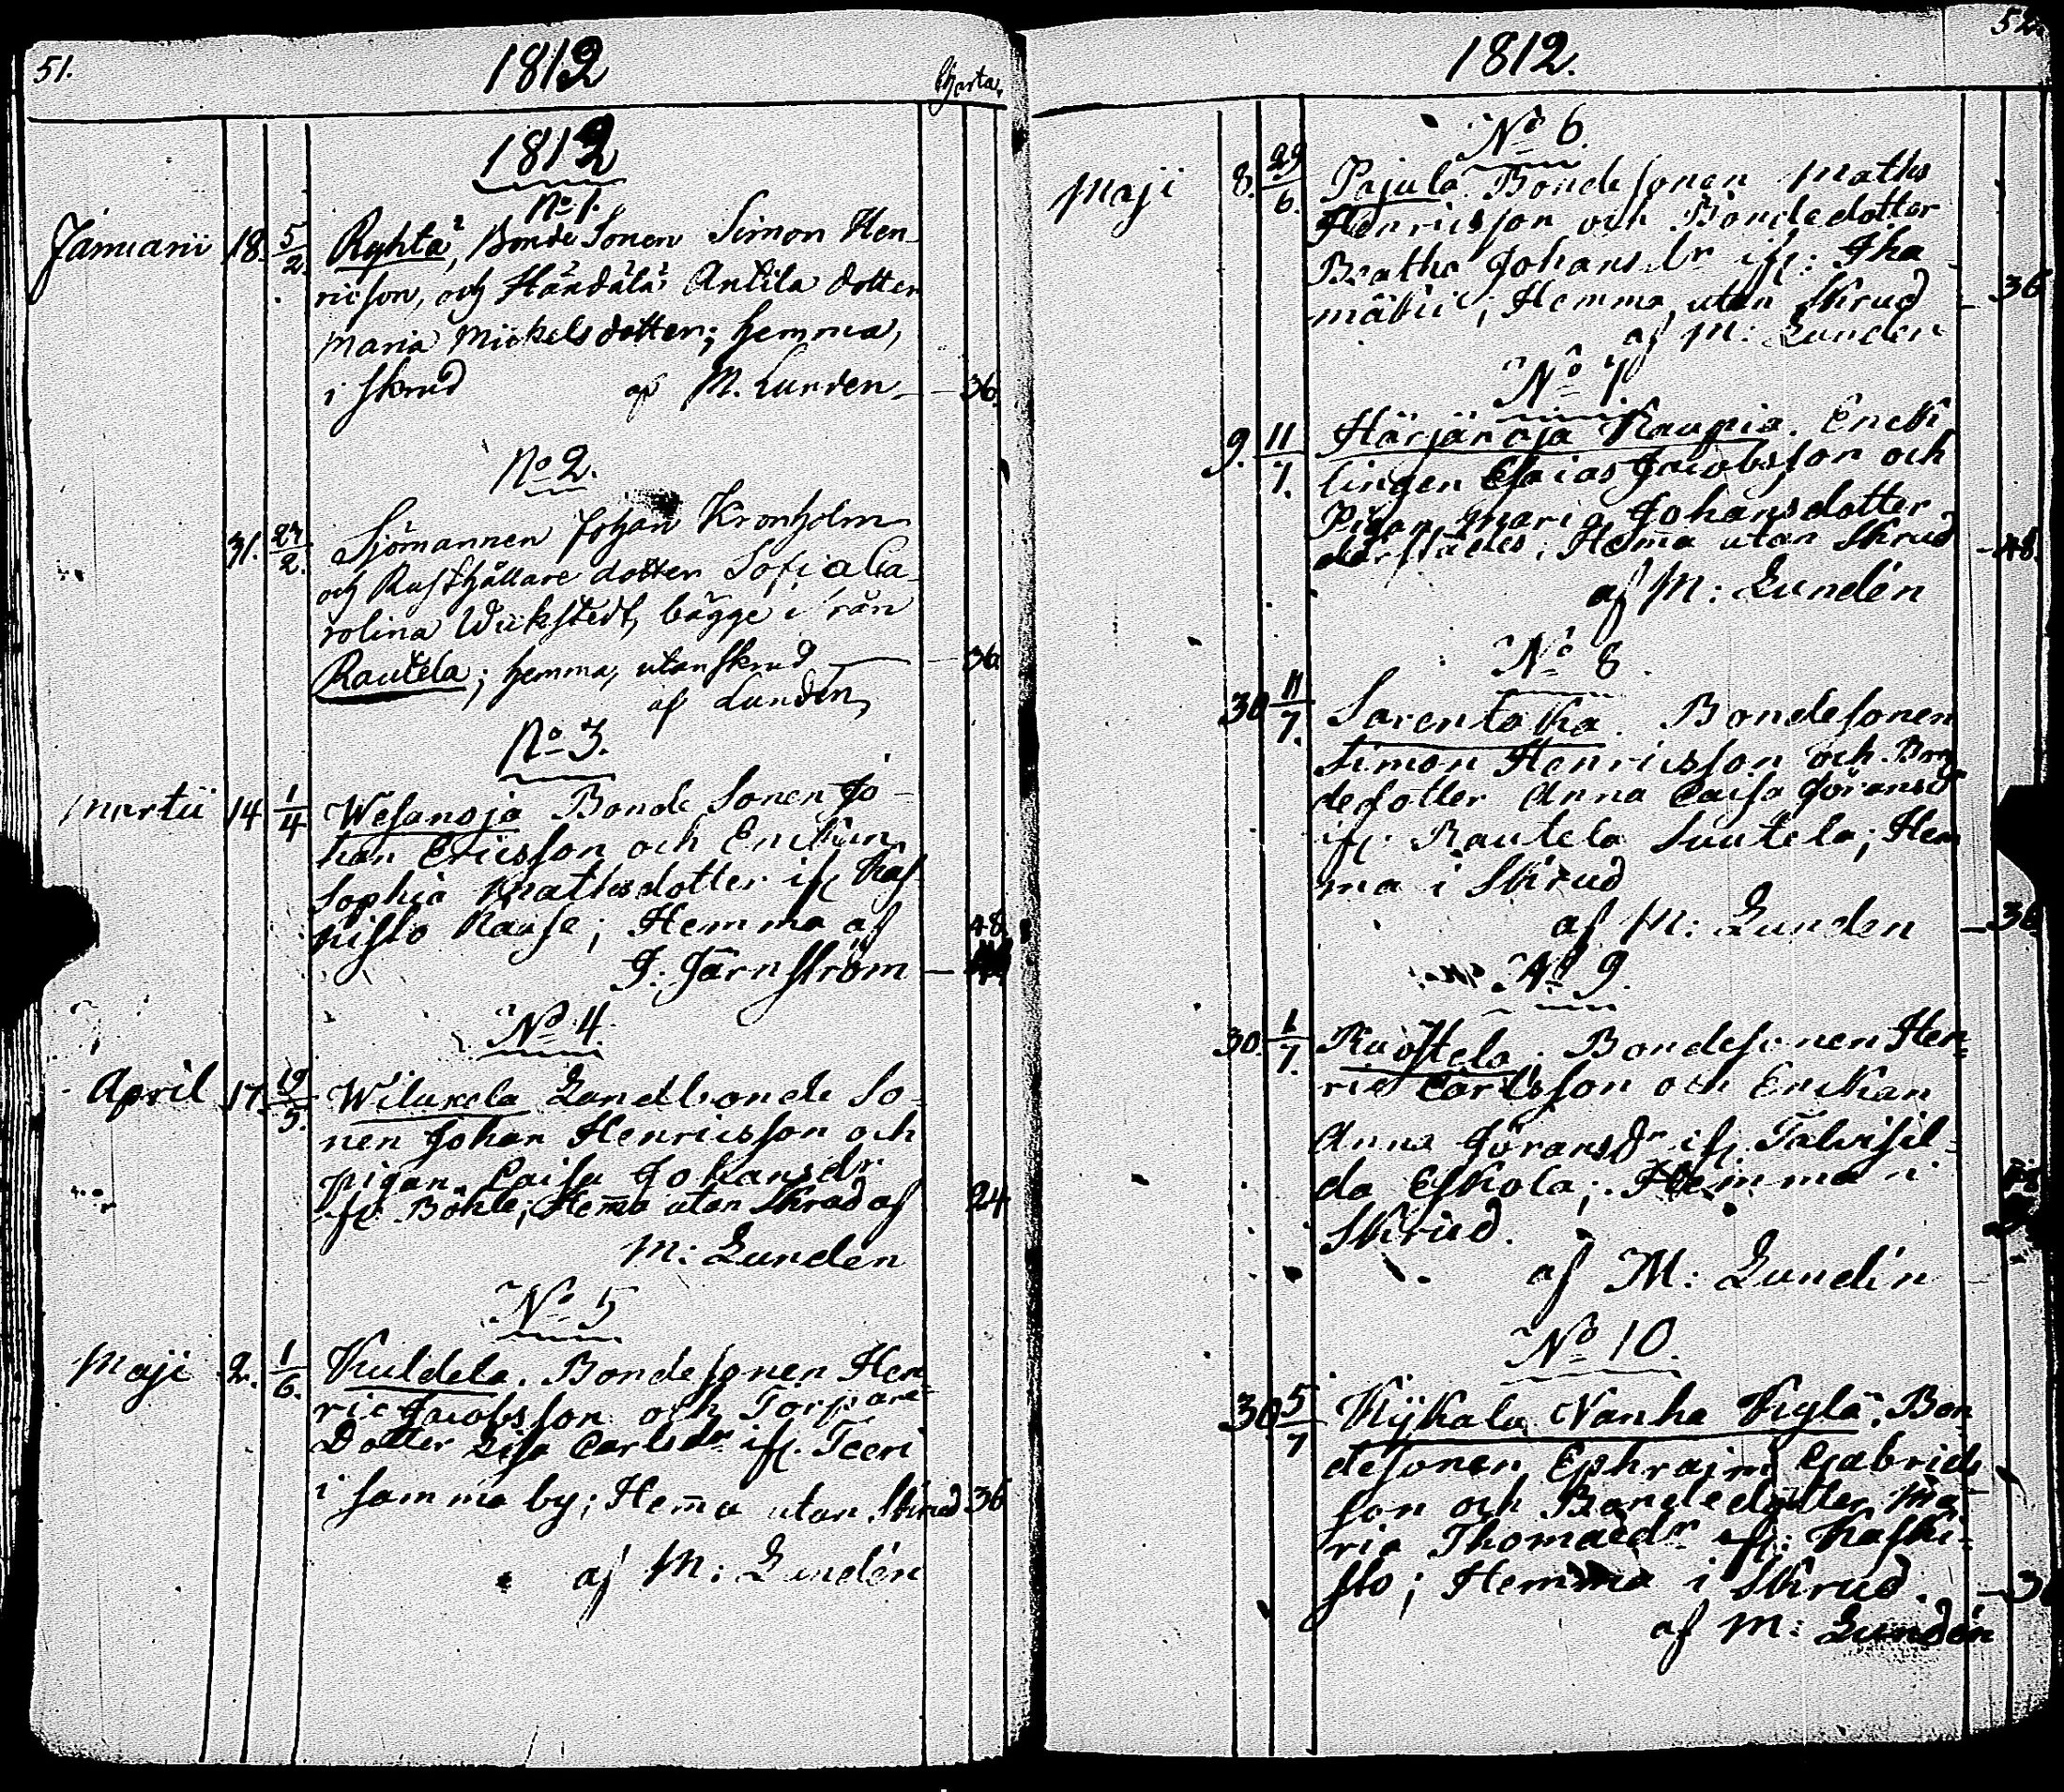 51.
1812
Charta.
1812
No 1.
Januarii 18. 5/2. Ryhtä, Bonde Sonen Simon Hen-
ricson, och Händälä Antila dotter
Maria Mickelsdotter; hemma,
i skrud af M. Lunden. 36.
No 2.
31. 27/2. Sjömannen Johan Kronholm
och Rusthållare dotter Sofia Ca-
rolina Wickstedt, bägge i från
Rautela; hemma, utan skrud 36
af Lunden
No 3.
Martii 14 1/4 Wesanoja Bonde Sonen Jo-
han Ericsson och Enkan
Sophia Mathesdotter ifr Kas-
kisto Kause; Hemma af 48
J: Järnström
No 4.
April 17. 19/5. Wilukela Landbonde So-
nen Johan Henricsson och
pigan Caisa Johansdr
ifr Böhle; Hema utan Skrud af 24
M: Lunden
No 5
Maji 2. 1/6. Kuldela. Bondesonen Hen-
ric Jacobsson och Torpare
Dotter Lisa Carlsdr ifr. Teeri
i samma by; Hema utan Skrud 36
af M: Lundén
1812.
No 6.
Maji 8. 29/6. Pajula. Bondesonen Maths
Henricsson och Bondedotter
Beatha Johansdr ifr: Iha
mäkii; Hemma utan Skrud 36
af M: Lunden
No 7
9. 11/7. Härjänoja Kaupia. Enck-
lingen Esaias Jacobsson och
Pigan Maria Johansdotter
därstädes; Hema utan Skrud 48.
af M: Lundén
No 8
30 11/7. Sorentaka. Bondesonen
Simon Henricsson och Bon
dedotter Anna Caisa Göransd
ifr. Rautela Suutela; Hem
ma i Skrud
af M: Lunden 36
No 9.
30. 1/7. Ruostela. Bondesonen Hen-
ric Carlsson och Enckan
Anna Göransdr ifr. Talvisil-
da Eskola; Hemma i
Skrud.
af M: Lundén
No 10.
30 5/7 Kijkala Nanha Kylä. Bon
desonen Ephraim Gabriels
son och Bondedotter Ma
ria Thomaedr ifr: Kaski-
sto; Hemma i Skrud.
af M: Lundén